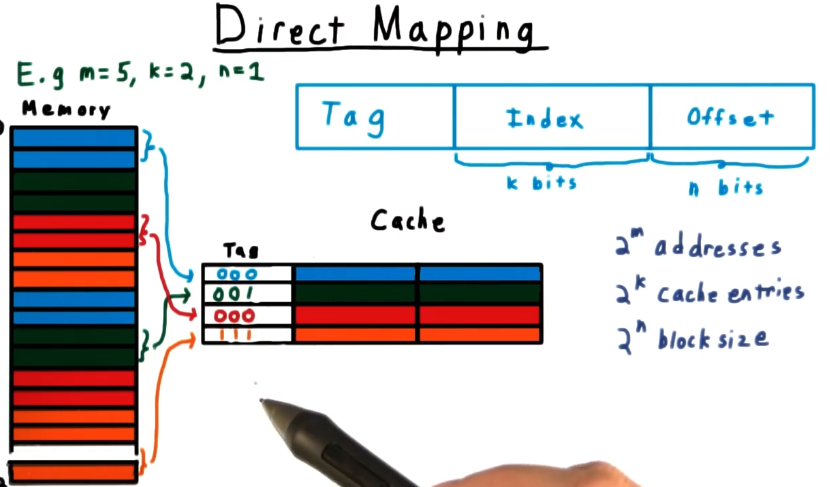 Direct Mapping
E.g m=5, k=2, n=1
Memory
Tag Index Offset
k bits n bits
Cache
Tag
000
001
000
111
2^m addresses
2^k cache entries
2^n block size